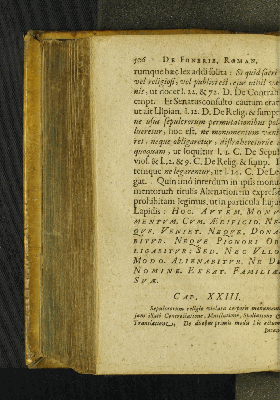 DE FUNERIB. ROMAN.
rumque hæc lex addi solita: Si quid sacri
vel religiosi, vel publici est, ejus nihil
nit, ut docet l. 22. & 72. D. De Contrah.
empt. Et Senatusconsulto cautum erat
ut ait Ulpian. l. 12. D. De Relig. & sumpt.
ne usus sepulcrorum permutationibus pol-
lueretur, hoc est, ne monumentum
ret, neque obligaretur,
quoquam, ut loquitur l. 4. C. De Sepul.
viol. & L. 2. & 9. C. De Relig. & sump.
temque ne legarentur, ut l. 14. C. De Le
gat. Quin imò interdum in ipsis monu-
mentorum titulis Alienationem expresse
prohibitam legimus, ut in particula hujus
Lapidis: HOC. ARTEM. MONU
MENTUM. CUM. ÆDIFICIO. NE-
QUE. VENIET. NEQUE. DONA
BITUR. NEQUE PIGNORI OB
LIGABITUR: SED. NEC ULLO
MODO. ALIENABITUR. NE DE
NOMINE. EXEAT. FAMILIAE
SUÆ.
CAP. XXIII.
Sepulcrorum religio violata corporis
jam illati Contrectatione,
Translatione. De duobus primis modis hic